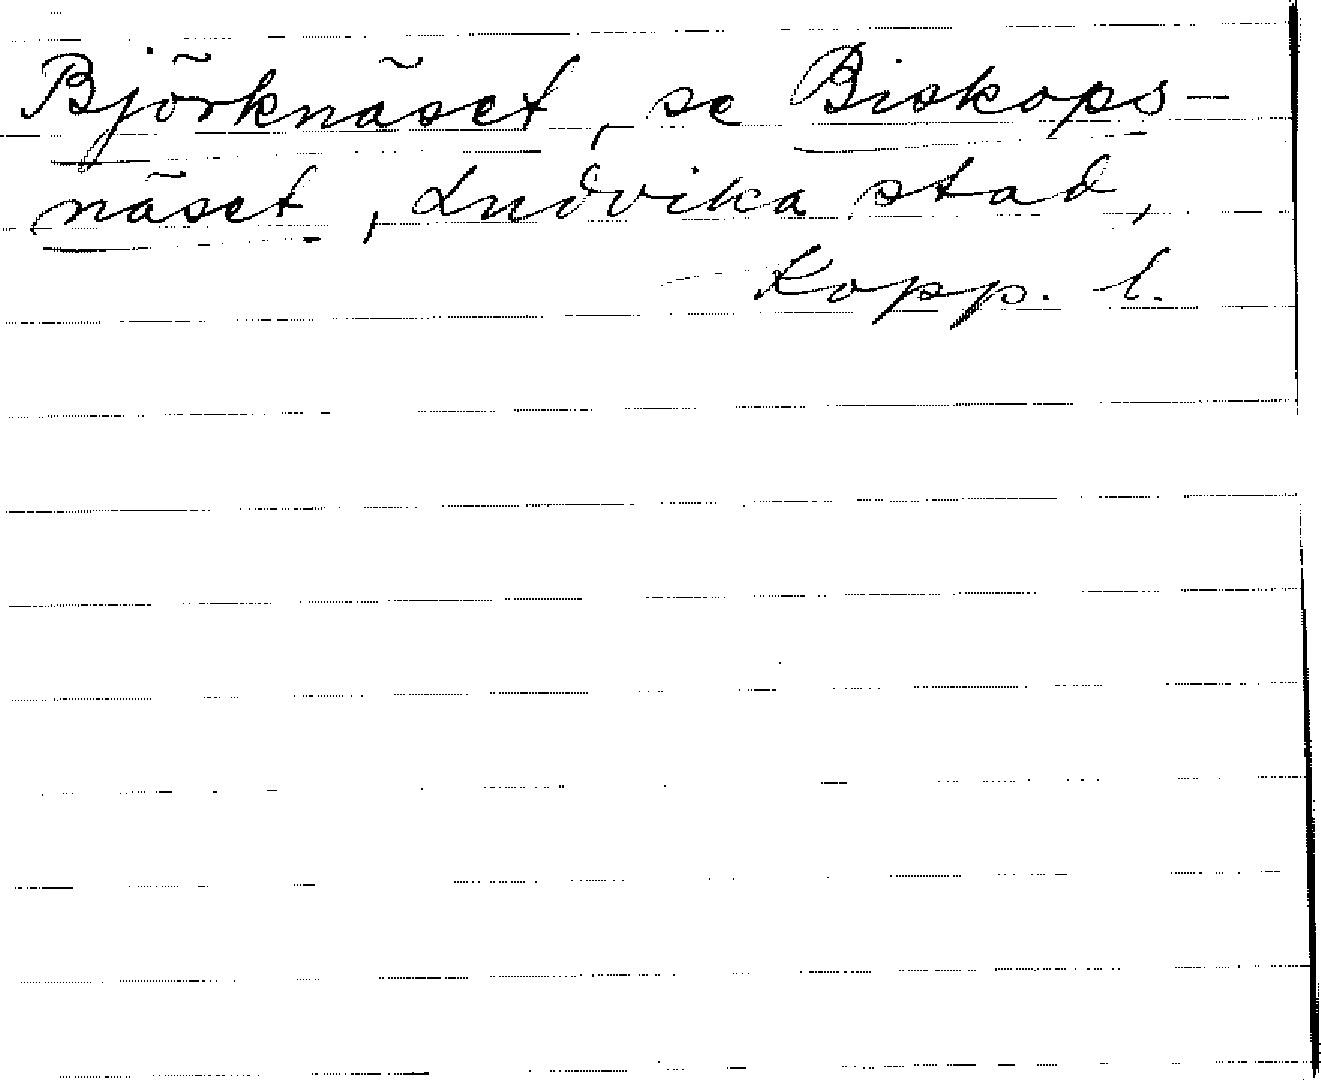 Björknäset, se Biskops-
näset, Ludvika stad,
Kopp. l.